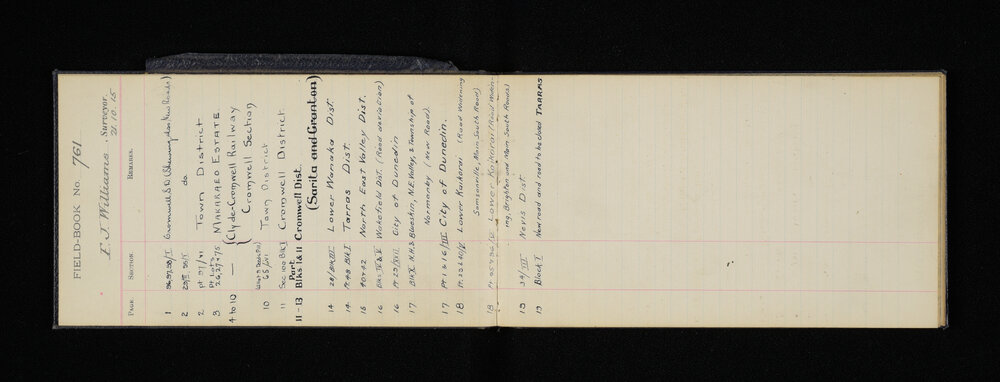 FIELD-BOOK No. 761
E. J. Williams, Surveyor.
21.10.15
PAGE. SECTION. REMARKS.
1 36,37,38/I Cromwell S.D. (Showing also New Roads)
2 do
2 pt 31/ Town District
3 Pt Lots 26,27 & 75 MAKARAEO ESTATE
4 to 10 — {Clyde-Cromwell Railway
{Cromwell Section}
10 65/ Town District
11 Sec 100 Blk I Cromwell District
11-13 Part Blks I & II Cromwell Dist.
(Sarita and Granton)
14 28/Blk III Lower Wanaka Dist.
14 Pt 48 Blk I Tarras Dist.
15 40 & 42 North East Valley Dist.
16 Blks IV & V Wakefield Dist. (Road deviation)
16 Pt 23/XVII City of Dunedin
17 Blk X N.H. & Blueskin, N.E. Valley, & Township of
Normanby (New Road).
17 Pt 1 & 16/III City of Dunedin.
18 Pt 33 & 40/V Lower Kaikorai (Road Widening
Samsonville, Main South Road)
18 Pt 35 & 36/V Lower Kaikorai (Road Widen-
ing, Brighton and Main South Roads)
19 34/VII Nevis Dist
19 Block I New road and road to be closed TARRAS